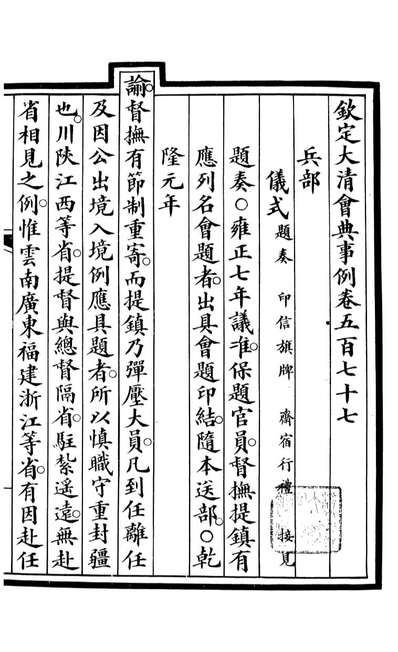 欽定大清會典事例卷五百七十七
兵部
儀式題奏 印信旗牌 齋宿行禮 接見
題奏○雍正七年議准保題官員督撫提鎮有
應列名會題者出具會題印結隨本送部○乾
隆元年
諭督撫有節制重寄而提鎮乃彈壓大員凡到任離任
及因公出境入境例應具題者所以慎職守重封疆
也川陝江西等省提督與總督隔省駐紮遙遠無赴
省相見之例惟雲南廣東福建浙江等省有因赴任